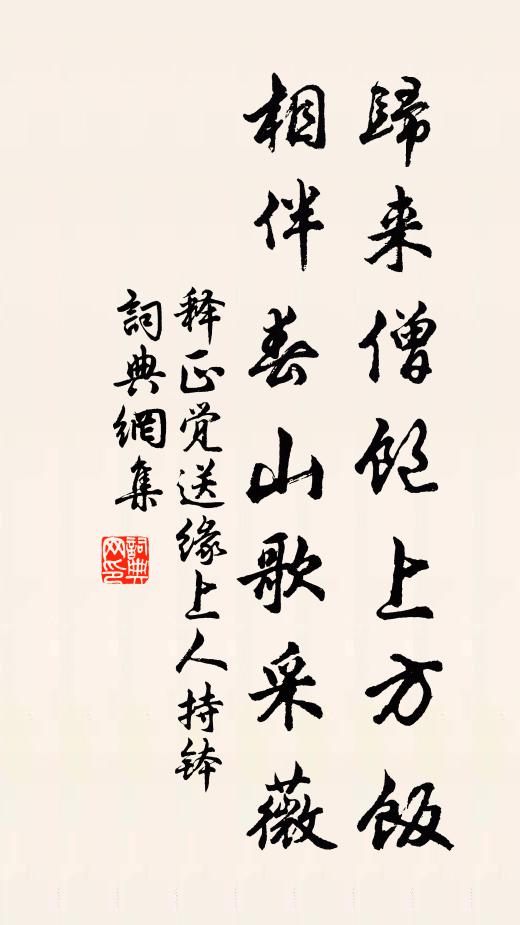 歸来僧飽上方飯
相伴春山歌采薇
释正觉送缘上人持钵
詞典網集
詞典网印